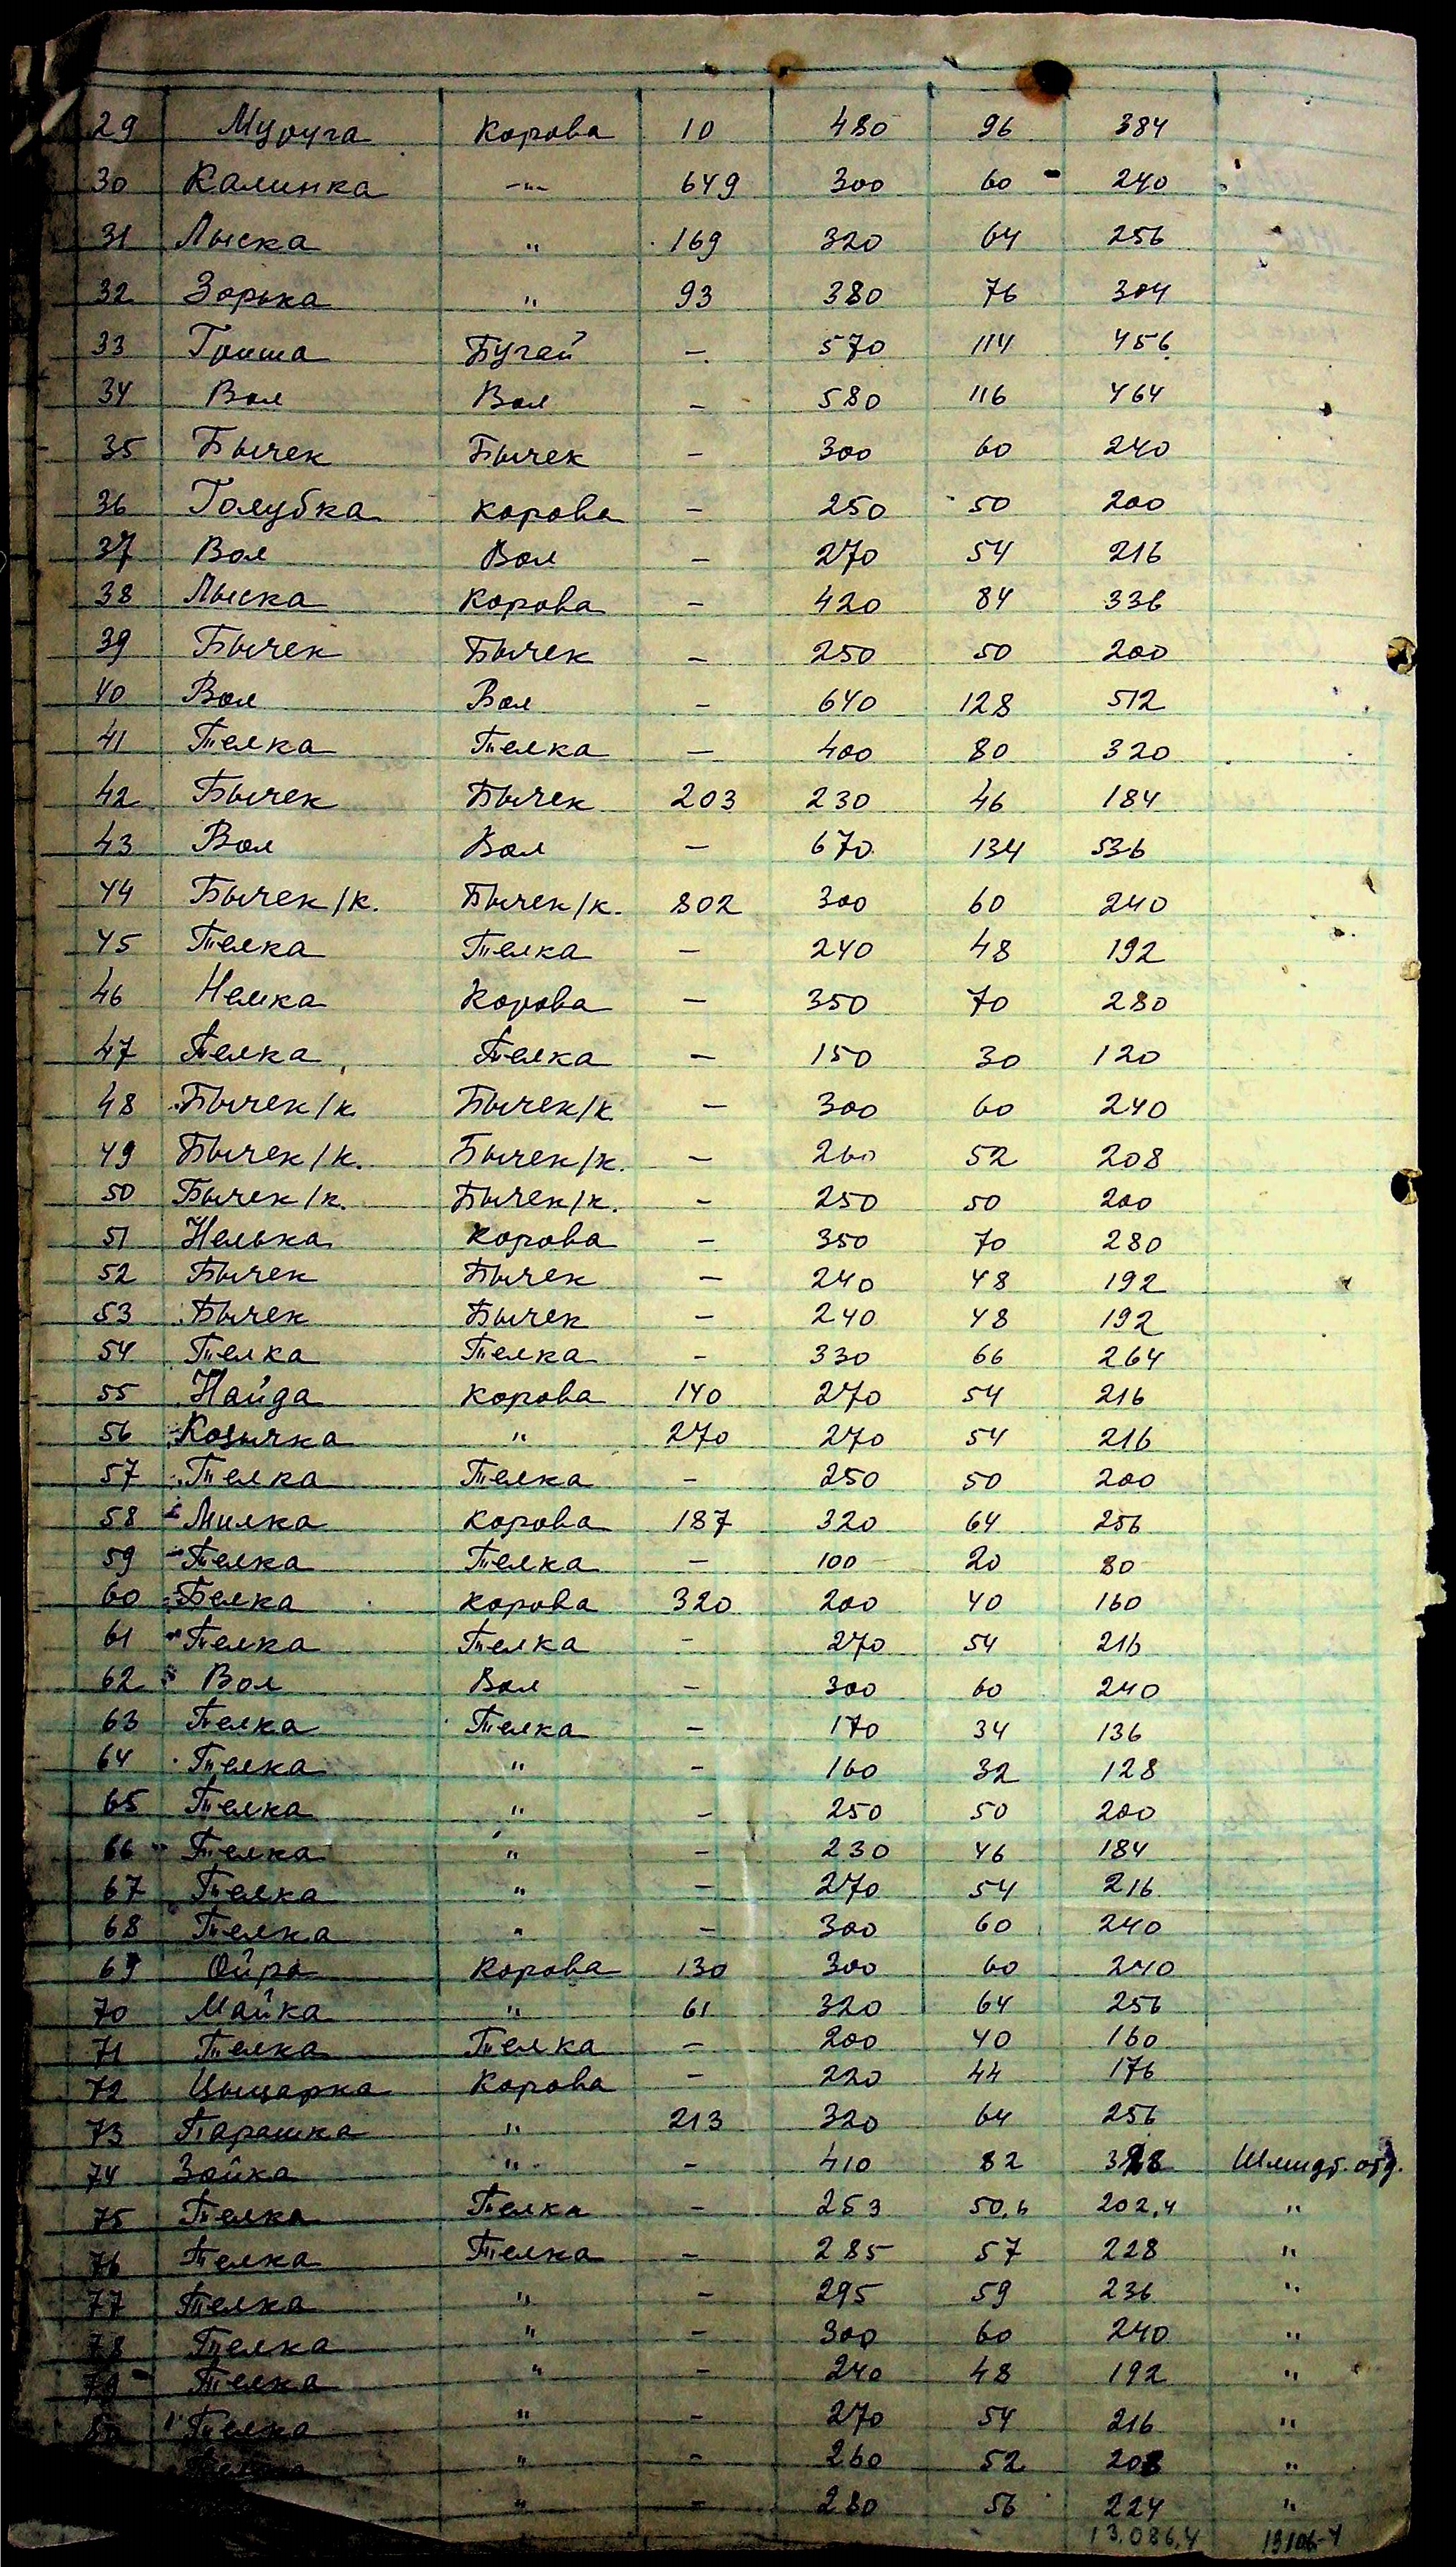 29 Муруга Корова 10 480 96 384
30 Калинка -"- 649 300 60 240
31 Лыска " 169 320 64 256
32 Зорька " 93 380 76 304
33 Гриша Бугай - 570 114 456
34 Вол Вол - 580 116 464
35 Бычек Бычек - 300 60 240
36 Голубка Корова - 250 50 200
37 Вол Вол - 270 54 216
38 Лыска Корова - 420 84 336
39 Бычек Бычек - 250 50 200
40 Вол Вол - 640 128 512
41 Телка Телка - 400 80 320
42 Бычек Бычек 203 230 46 184
43 Вол Вол - 670 134 536
44 Бычек/к. Бычек/к. 802 300 60 240
45 Телка Телка - 240 48 192
46 Немка Корова - 350 70 280
47 Телка Телка - 150 30 120
48 Бычек/к Бычек/к - 300 60 240
49 Бычек/к. Бычек/к. - 260 52 208
50 Бычек/к. Бычек/к. - 250 50 200
51 Нелька Корова - 350 70 280
52 Бычек Бычек - 240 48 192
53 Бычек Бычек - 240 48 192
54 Телка Телка - 330 66 264
55 Найда Корова 140 270 54 216
56 Козычка " 270 270 54 216
57 Телка Телка - 250 50 200
58 Милка Корова 187 320 64 256
59 Телка Телка - 100 20 80
60 Белка Корова 320 200 40 160
61 Телка Телка - 270 54 216
62 Вол Вол - 300 60 240
63 Телка Телка - 170 34 136
64 Телка " - 160 32 128
65 Телка " - 250 50 200
66 Телка " - 230 46 184
67 Телка " - 270 54 216
68 Телка " - 300 60 240
69 Ойра Корова 130 300 60 240
70 Майка " 61 320 64 256
71 Телка Телка - 200 40 160
72 Цыцарка Корова - 220 44 176
73 Парашка " 213 320 64 256
74 Зойка " - 410 82 328 Шмидт. отд.
75 Телка Телка - 253 50,6 202,4 "
76 Телка Телка - 285 57 228 "
77 Телка " - 295 59 236 "
78 Телка " - 300 60 240 "
79 Телка " - 240 48 192 "
80 Телка " - 270 54 216 "
" - 260 52 208 "
" - 280 56 224 "
13.086,4